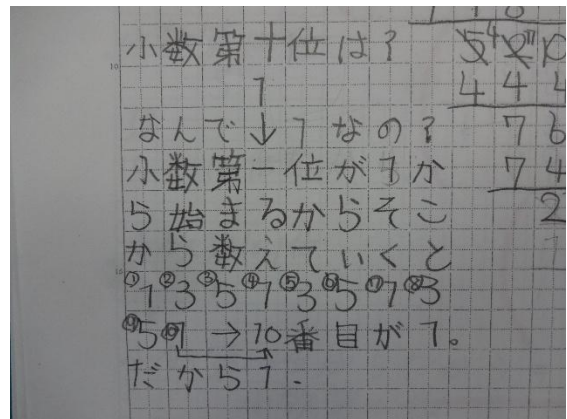 小数第十位は?
1
なんで↓1なの?
小数第一位が1か
ら始まるからそこ
から数えていくと
①1②3③5④1⑤3⑥5⑦1⑧3
⑨5⑩1→10番目が1。
だから1.
444
76
74
2